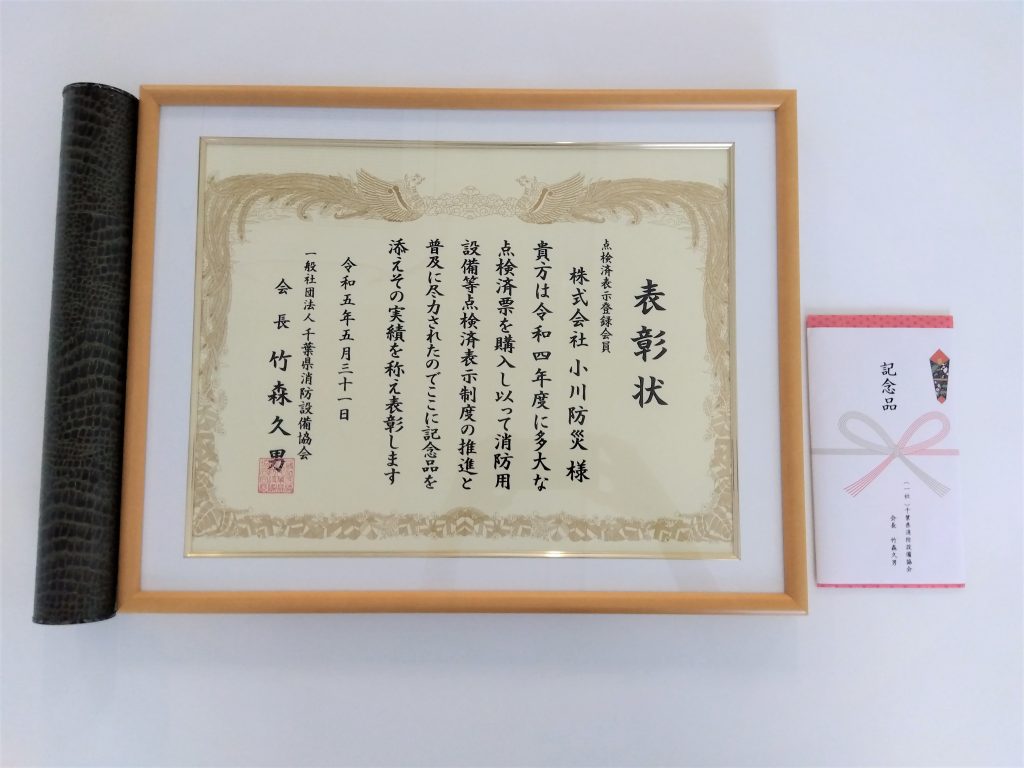 表彰状
点検済表示登録会員
株式会社 小川防災 様
貴方は令和四年度に多大な
点検済票を購入し以って消防用
設備等点検済表示制度の推進と
普及に尽力されたのでここに記念品を
添えその実績を称え表彰します
令和五年五月三十一日
一般社団法人 千葉県消防設備協会
会長 竹森久男
記念品
(一社)千葉県消防設備協会
会長 竹森久男